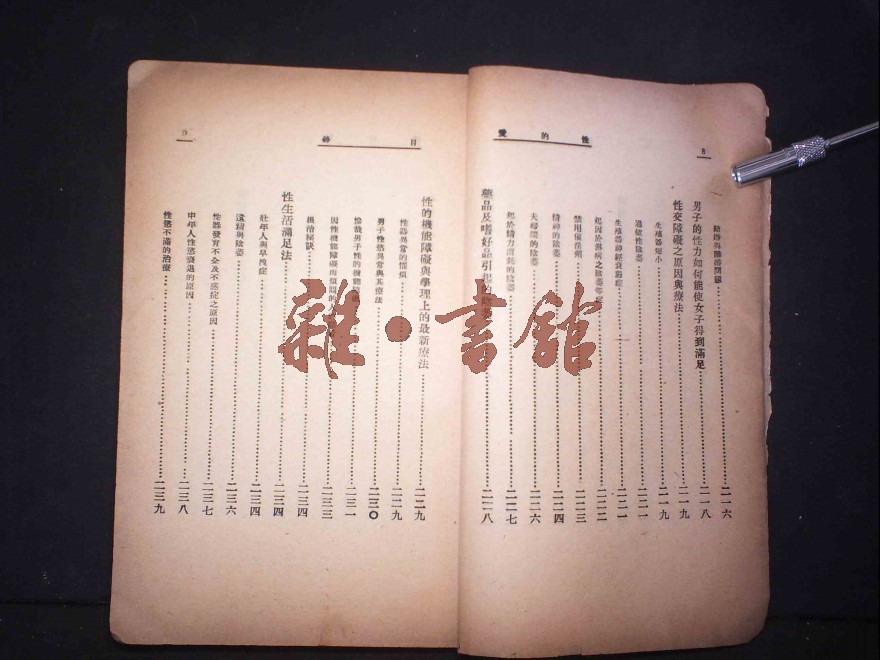 8
性的愛
男子的性力如何能使女子得到滿足……二一八
性交障礙之原因與療法……二一九
生殖器短小……二一九
過敏性陰萎……二二一
生殖器神經衰弱症……二二一
起因於淋病之陰萎……二二二
禁用催淫劑……二二三
精神的陰萎……二二四
夫婦間的陰萎……二二六
起於精力消耗的陰萎……二二七
藥品及嗜好品引起的陰萎……二二八
目錄
9
性的機能障礙與學理上的最新療法……二二九
性器異常的煩惱……二二九
男子性慾異常與其療法……二三〇
二三一
因性機能障礙而煩悶的人……二三三
根治祕訣……二三四
性生活滿足法……二三四
壯年人與早洩症……二三四
遺精與陰萎……二三六
性器發育不全及不感症之原因……二三七
中年人性慾衰退的原因……二三八
性慾不滿的治療……二三九
雜·書館